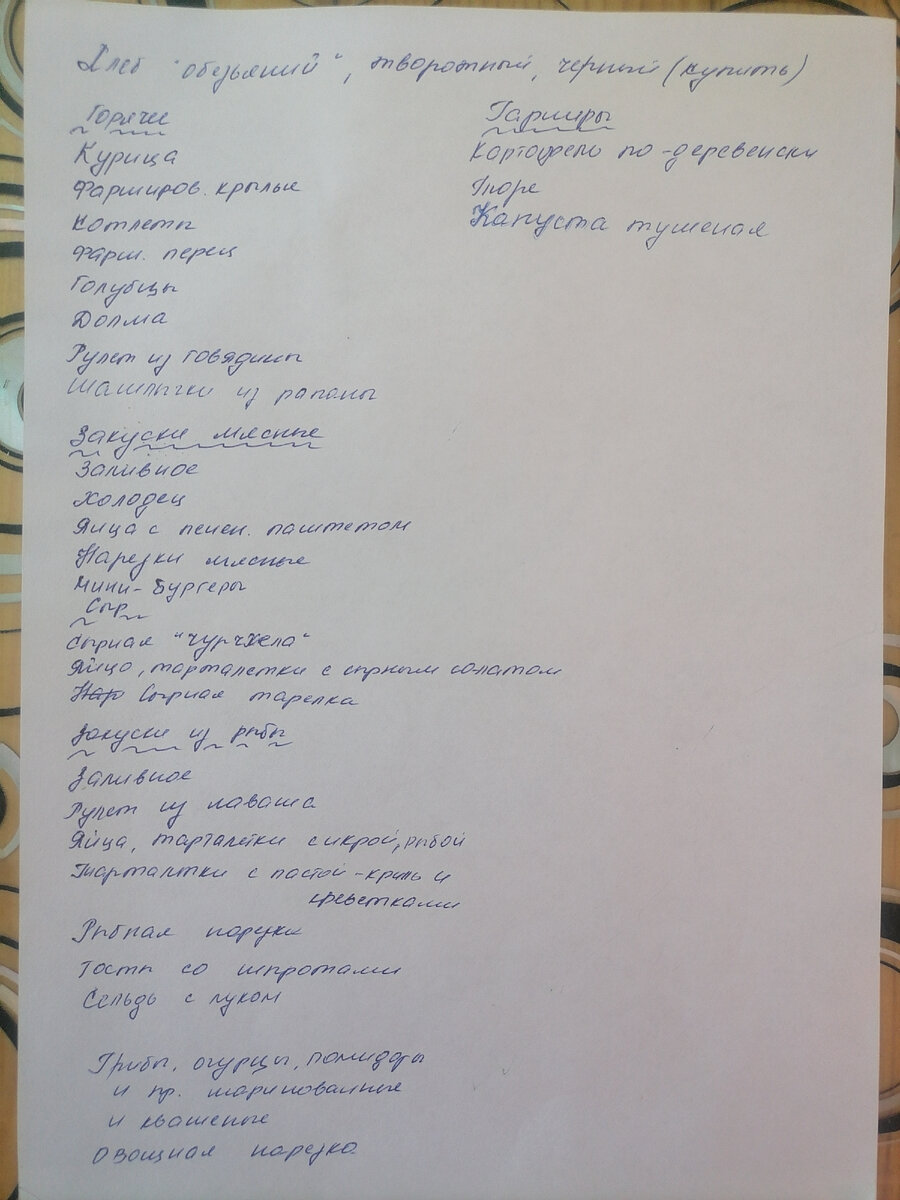 Хлеб "обезьяний", творожный, черный (купить)
Горячее
Курица
Фарширов. крылья
Котлеты
Фарш. перец
Голубцы
Долма
Рулет из говядины
Шашлычки из рапаны
Гарниры
Картофель по-деревенски
Пюре
Капуста тушеная
Закуски мясные
Заливное
Холодец
Яйца с печен. паштетом
Нарезки мясные
Мини-бургеры
Сыр
Сырная "чурчхела"
Яйцо, тарталетки с сырным салатом
Нар Сырная тарелка
Закуски из рыбы
Заливное
Рулет из лаваша
Яйца, тарталетки с икрой, рыбой
Тарталетки с пастой-криль и
креветками
Рыбная нарезка
Тосты со шпротами
Сельдь с луком
Грибы, огурцы, помидоры
и пр. маринованные
и квашеные
Овощная нарезка